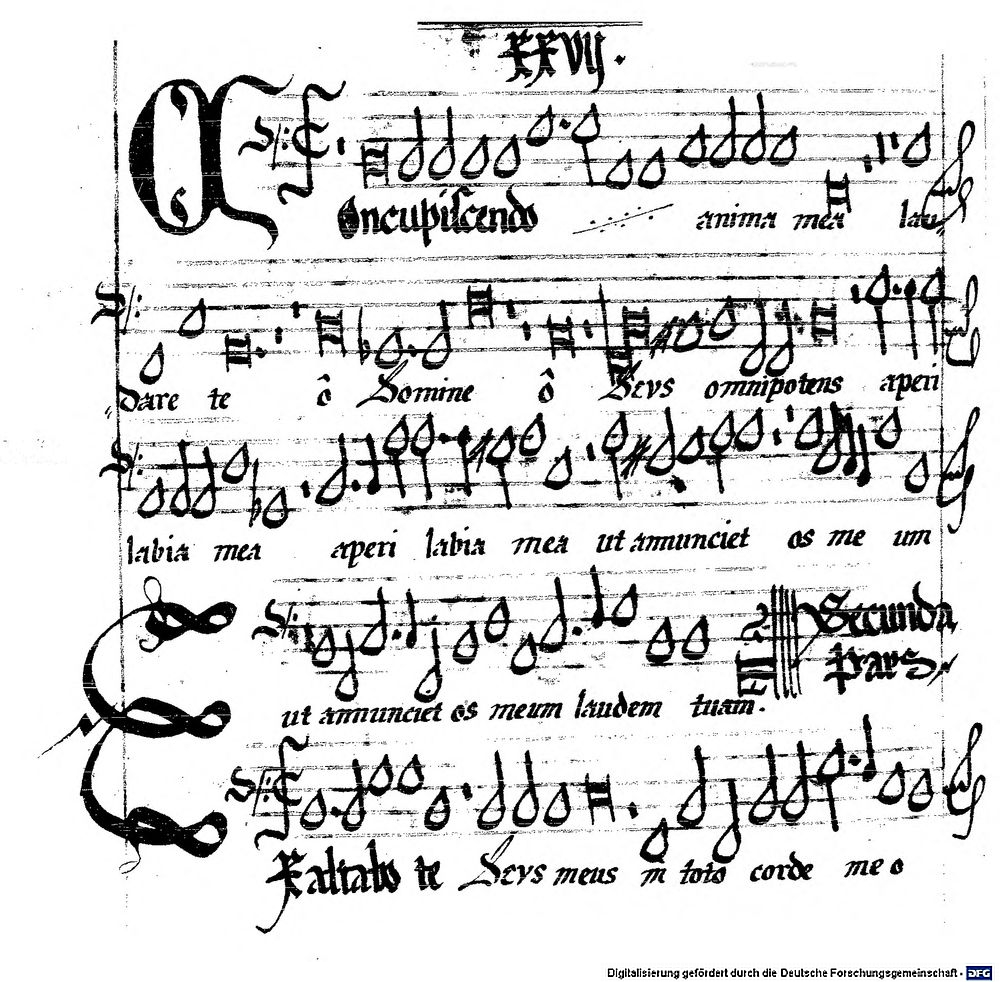 XXVII.
Concupiscendo anima mea lau
dare te ô Domine ô Deus omnipotens aperi
labia mea aperi labia mea ut annunciet os me um
ut annunciet os meum laudem tuam.
Secunda
Pars
Exaltabo te Deus meus in toto corde me o
Digitalisierung gefördert durch die Deutsche Forschungsgemeinschaft - DFG